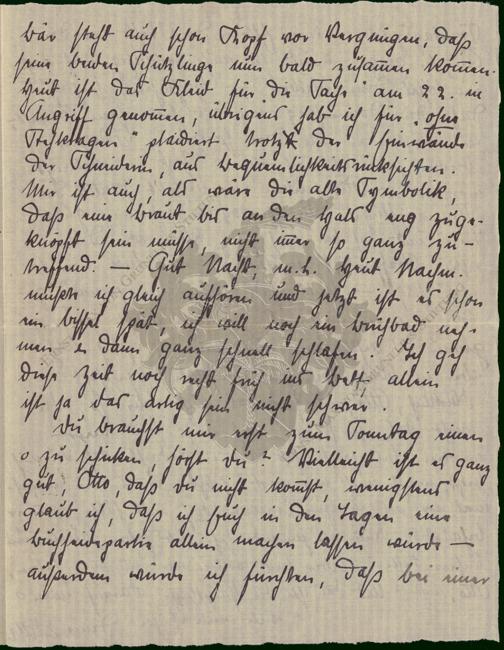 Bär steht auch schon Kopf vor Vergnügen, daß
seine beiden Schützlinge nun bald zusammen kommen.
Heut ist das Kleid für die Sache am 22. in
Angriff genommen, übrigens hab ich für „ohne
Stehkragen" plädiert trotz der Einwände
der Schneiderin, aus Bequemlichkeitsrücksichten.
Mir ist auch, als wäre die alte Symbolik,
daß eine Braut bis an den Hals eng zuge-
knöpft sein müsse, nicht immer so ganz zu-
treffend. — Gut Nacht, m. L. Heut Nachm.
mußte ich gleich aufhören und jetzt ist es schon
ein bissel spät, ich will noch ein bad neh-
men u. dann ganz schnell schlafen. Ich geh
diese Zeit noch recht früh ins Bett, allein
ist ja das artig sein nicht schwer.
Du brauchst mir erst zum Sonntag einen
o zu schicken, hörst du? Vielleicht ist es ganz
gut, Otto, daß du nicht kommst, wenigstens
glaub ich, daß ich Euch in den Tagen eine
allein machen lassen würde —
außerdem würde ich fürchten, daß bei einer